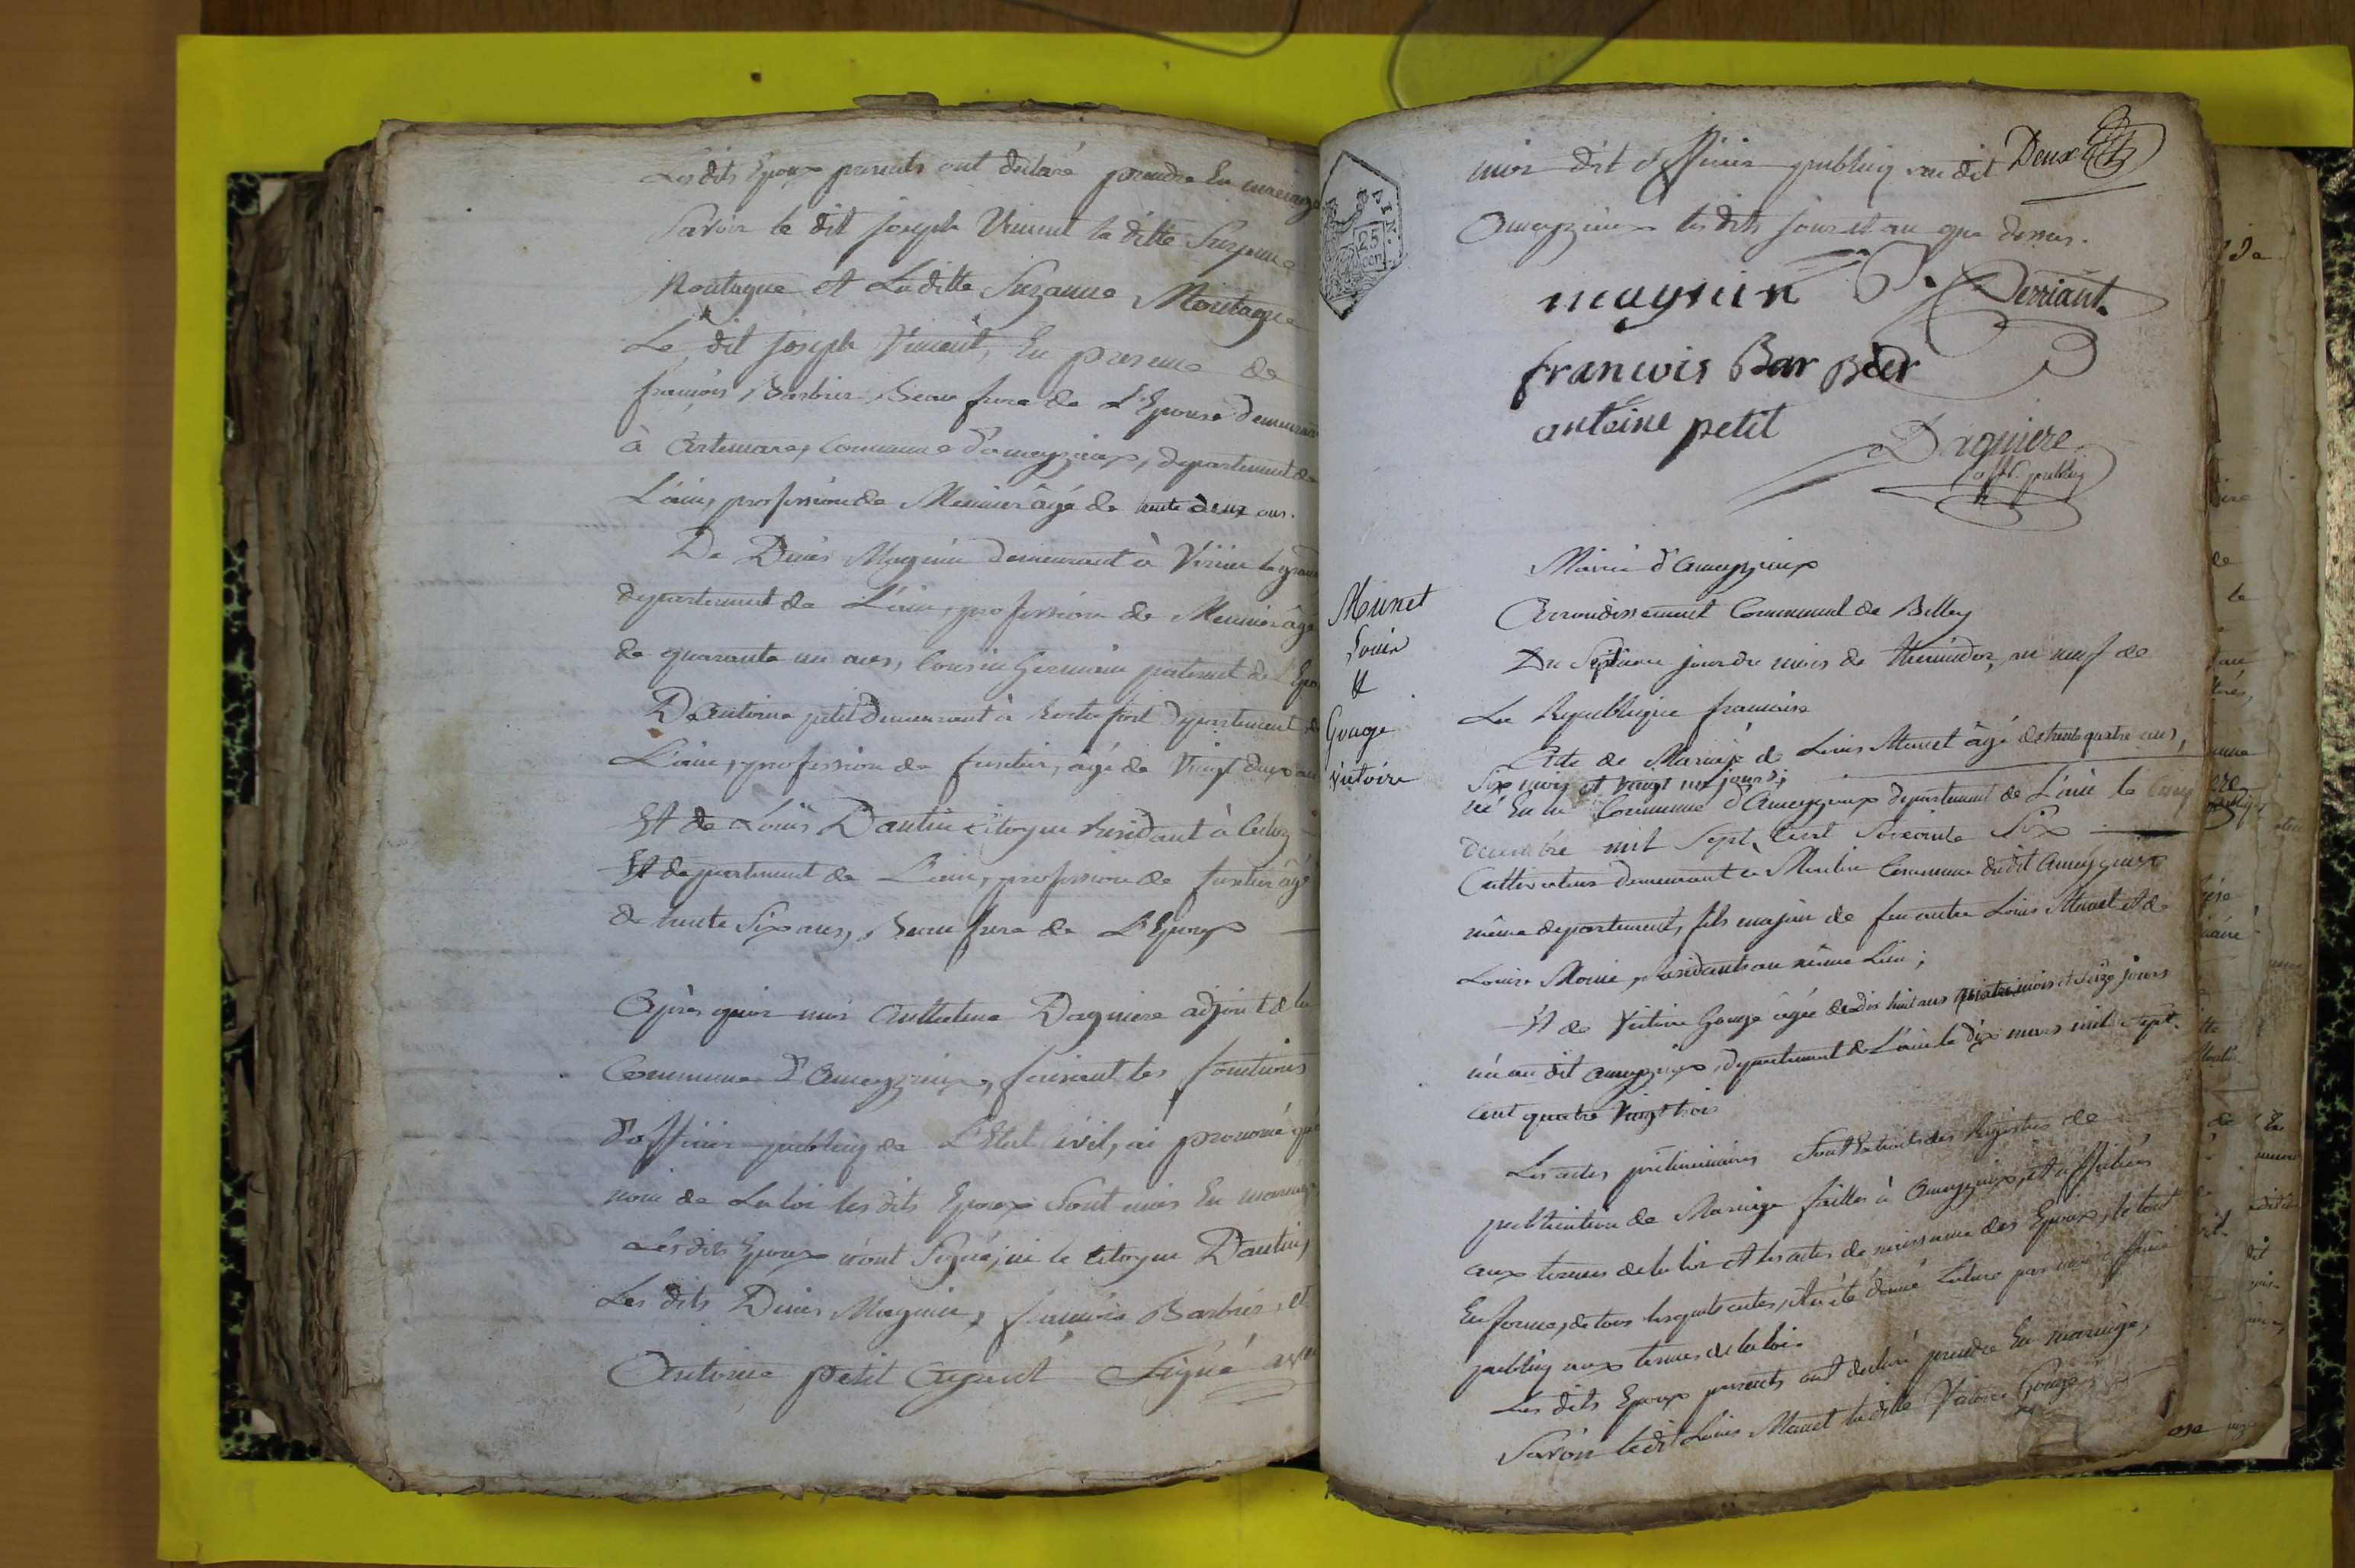 Les dits Epoux presents ont declaré prendre En mariage
Savoir le dit joseph Vincent la ditte Suzanne
Montagne et Laditte Suzanne Montagne
Le dit joseph Vincent, En presence de
françois Barbier, Beau frere de L'Epouse demeurant
à Artemare, Commune d'ameyzieux, departement de
L'ain, profession de Meunier âgé de trente deux ans.
De Denis Magnin demeurant à Virieu le grand
departement de L'ain, profession de Meunier âgé
de quarante un ans, Cousin Germain paternel de l'Epoux
D'Antoine petit Demeurant à departement de
L'ain, profession de âgé de Vingt deux ans
Et de Louis Dantin Citoyen Residant à
Et departement de L'ain, profession de âgé
de trente Six ans, Beau frere de L'Epoux
Après quoi moi Anthelme Dagniere adjoint de la
Commune D'Ameyzieux, faisant les fonctions
D'officier publiq de L'Etat Civil, ai prononcé qu'au
nom de La loi les dits Epoux Sont unis En mariage
Les dits Epoux n'ont Signé, ni le Citoyen Dantin,
Les dits Denis Magnin, françois Barbier, et
Antoine petit Ayant Signé avec
moi dit officier publiq au dit
Deux
Ameyzieux les dits jour et an que dessus.
25 cen.
magnin Derriant
francois Bar Bier
antoine petit
Dagniere
off. publiq
Munet
Louis
et
Gouge
Victoire
Mairie d'Ameyzieux
Arrondissement Communal de Belley
Du Septieme jour du mois de thermidor, an neuf de
La Republique francaise
Acte de Mariage de Louis Munet âgé de trente quatre ans,
Six mois et vingt un jours;
né En la Commune d'Ameyzieux departement de L'ain le cinq
decembre mil Sept Cent Soixante Six
Cultivateur demeurant à Commune du dit Ameyzieux
même departement, fils majeur de feu autre Louis Munet et de
Louise Residants au même Lieu;
Et de Victoire Gouge âgée de dix huit ans quatre mois et Seize jours
née au dit Ameyzieux, departement de L'ain le dix mars mil Sept
cent quatre Vingt trois
Les actes préliminaires Sont Extraits des Registres de
publication de Mariage faittes à Ameyzieux, et affichées
aux termes de la loi et les actes de naissance des Epoux, le tout
En forme, de tous lesquels actes, il a été donné Lecture par moi officier
publiq aux termes de la loi.
Les dits Epoux presents ont declaré prendre En mariage,
Savoir le dit Louis Munet la ditte Victoire Gouge